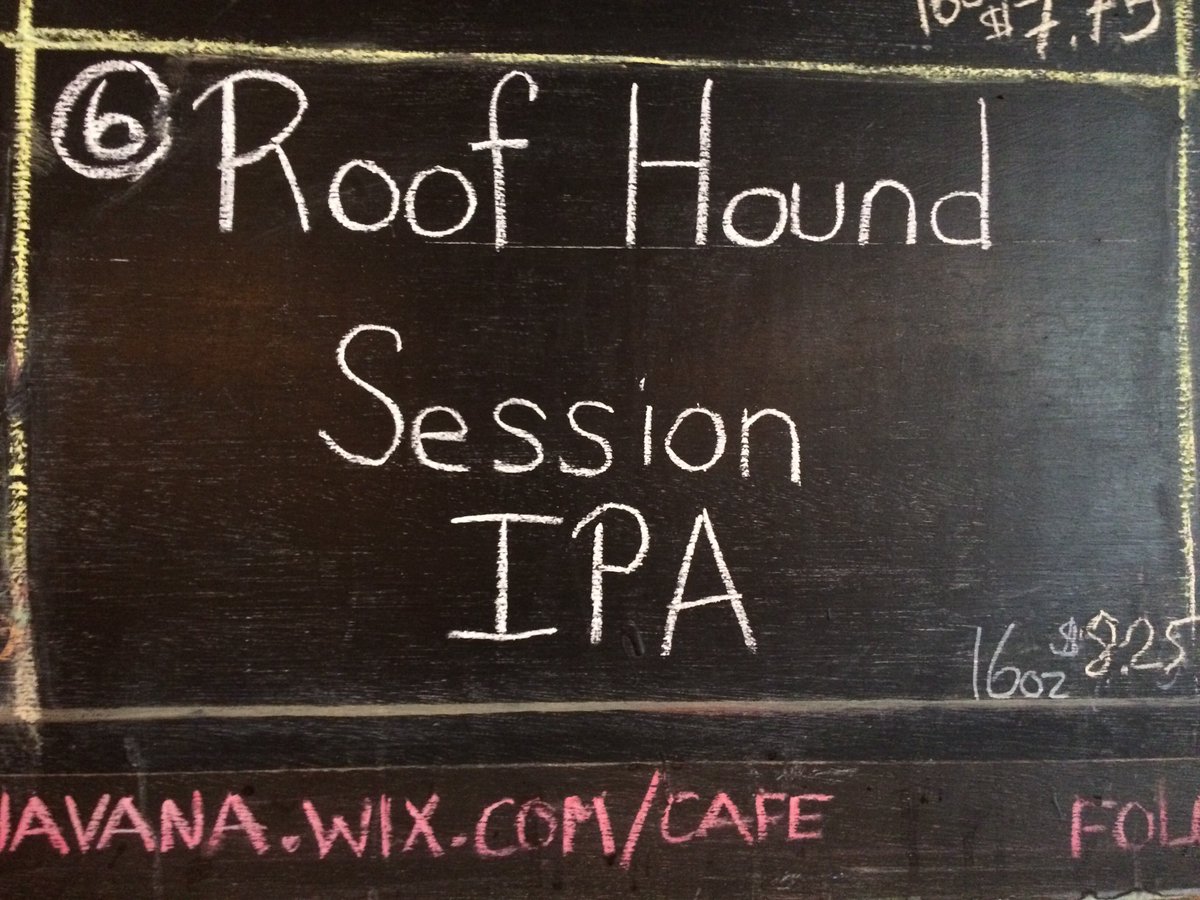 $7.75
6 Roof Hound
Session
IPA
16oz $8.25
JAVANA.WIX.COM/CAFE